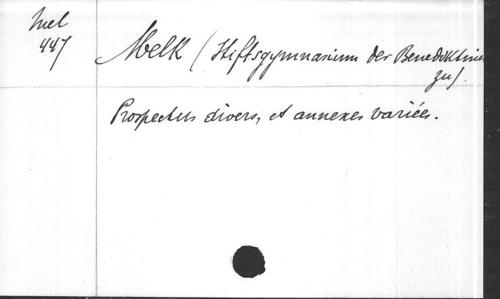 Mel
447
Melk (Stiftsgymnasium der Benediktiner
zu).
Prospectus divers, et annexes variées.